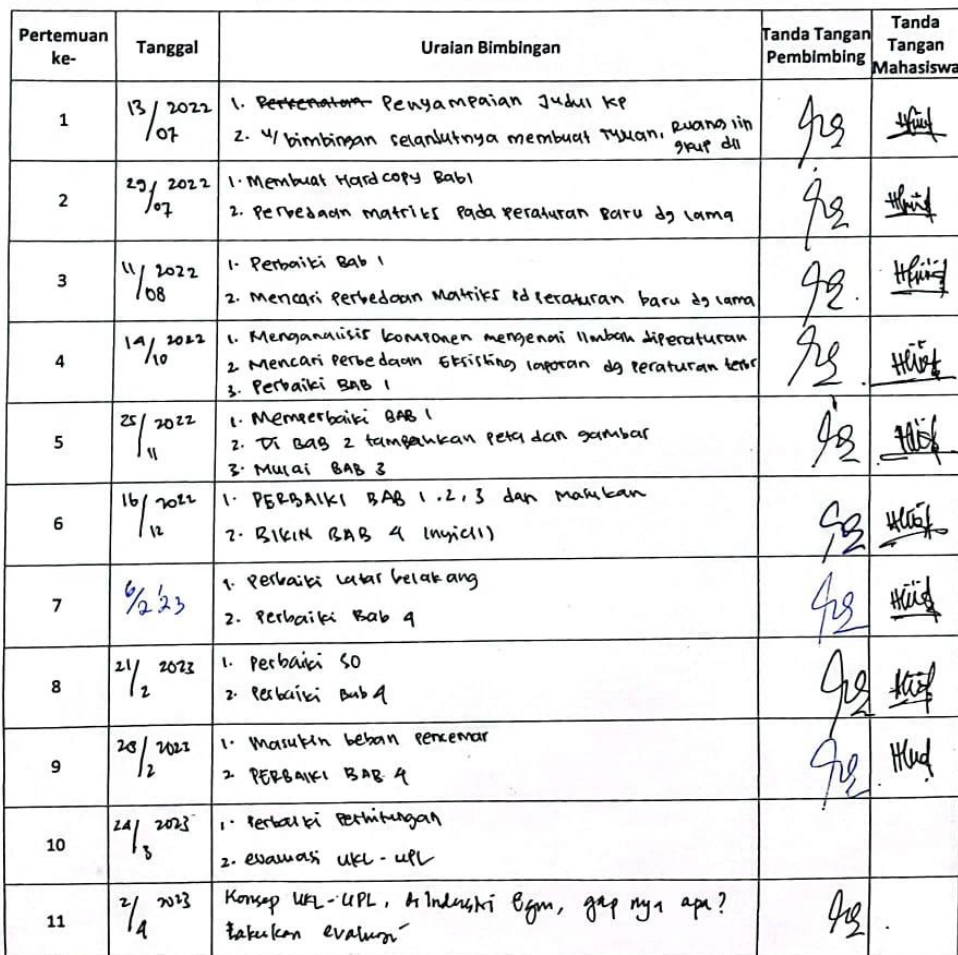 Pertemuan ke-
Tanggal
Uraian Bimbingan
Tanda Tangan Pembimbing
Tanda Tangan Mahasiswa
1
13/07 2022
1. Perkenalan Penyampaian Judul KP
2. u/ bimbingan selanjutnya membuat Tujuan, Ruang lin
grup dll
2
29/07 2022
1. Membuat Hardcopy Bab 1
2. Perbedaan matriks pada peraturan baru dg lama
3
11/08 2022
1. Perbaiki Bab 1
2. Mencari perbedaan matriks pd peraturan baru dg lama
4
14/10 2022
1. Menganalisis komponen mengenai limbah diperaturan
2 Mencari perbedaan Eksisting laporan dg peraturan
3. Perbaiki BAB 1
5
25/11 2022
1. Memperbaiki BAB 1
2. Di BAB 2 tambahkan peta dan gambar
3. Mulai BAB 3
6
16/12 2022
1. PERBAIKI BAB 1.2,3 dan Masukan
2. BIKIN BAB 4
7
6/2 '23
1. Perbaiki latar belakang
2. Perbaiki Bab 4
8
21/2 2023
1. Perbaiki
2. Perbaiki Bab 4
9
28/2 2023
1. Masukin beban pencemar
2. PERBAIKI BAB 4
10
24/3 2023
1. Perbaiki Perhitungan
2. evaluasi UKL-UPL
11
2/4 2023
Konsep UKL-UPL, di Industri bgm, gap nya apa?
Lakukan evaluasi